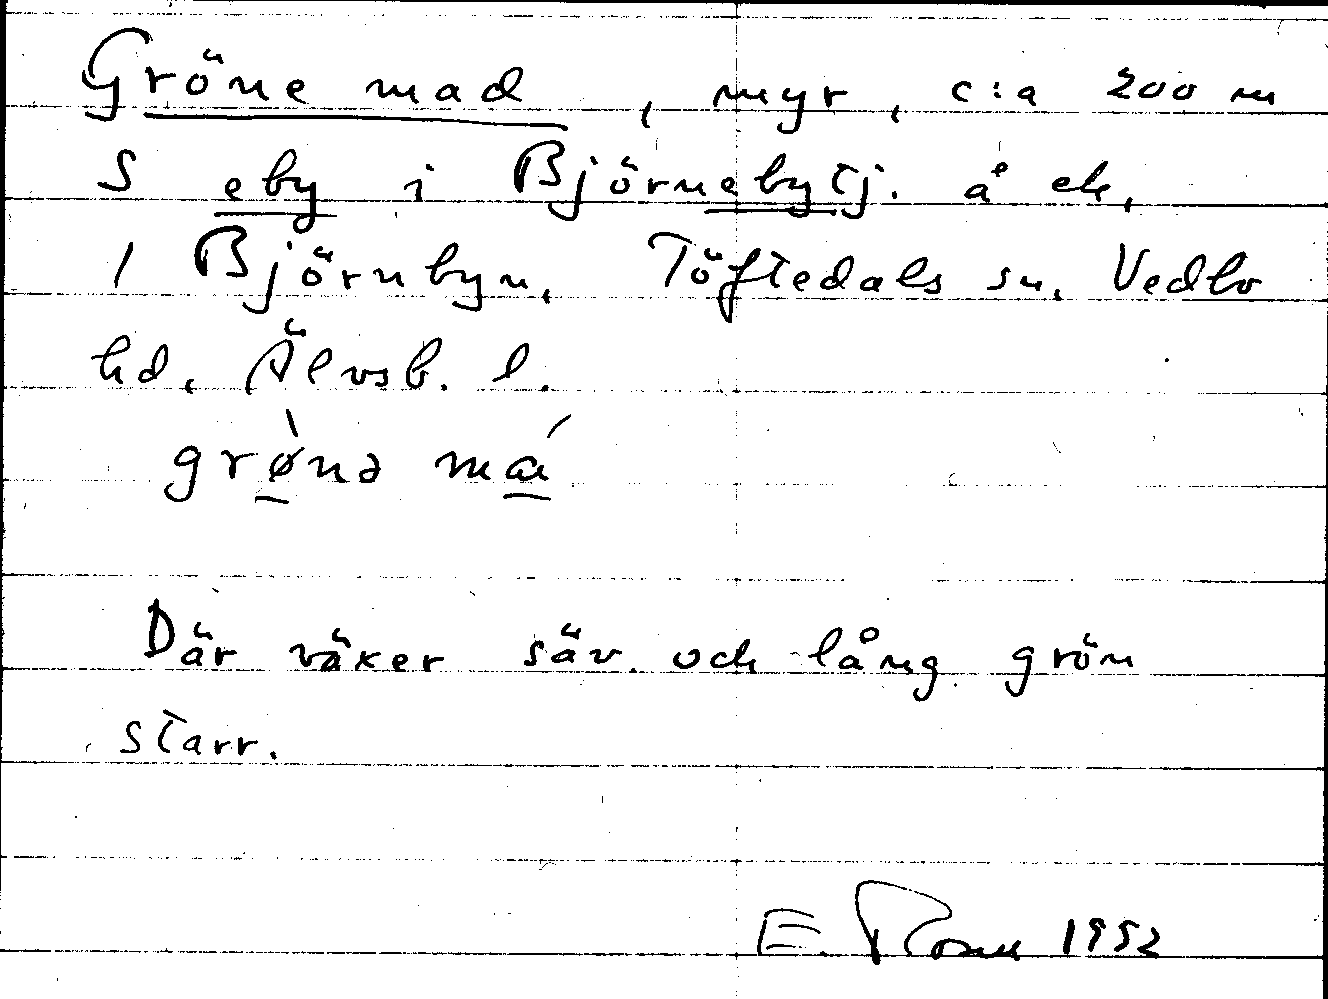 Gröne mad, myr, c:a 200 m
S eby i Björnebytj. å ek,
1 Björnbyn, Töftedals sn, Vedbo
hd, Älvsb. l.
grø̀nə má
Där väker säv och lång grön
starr.
E. Rosell 1952